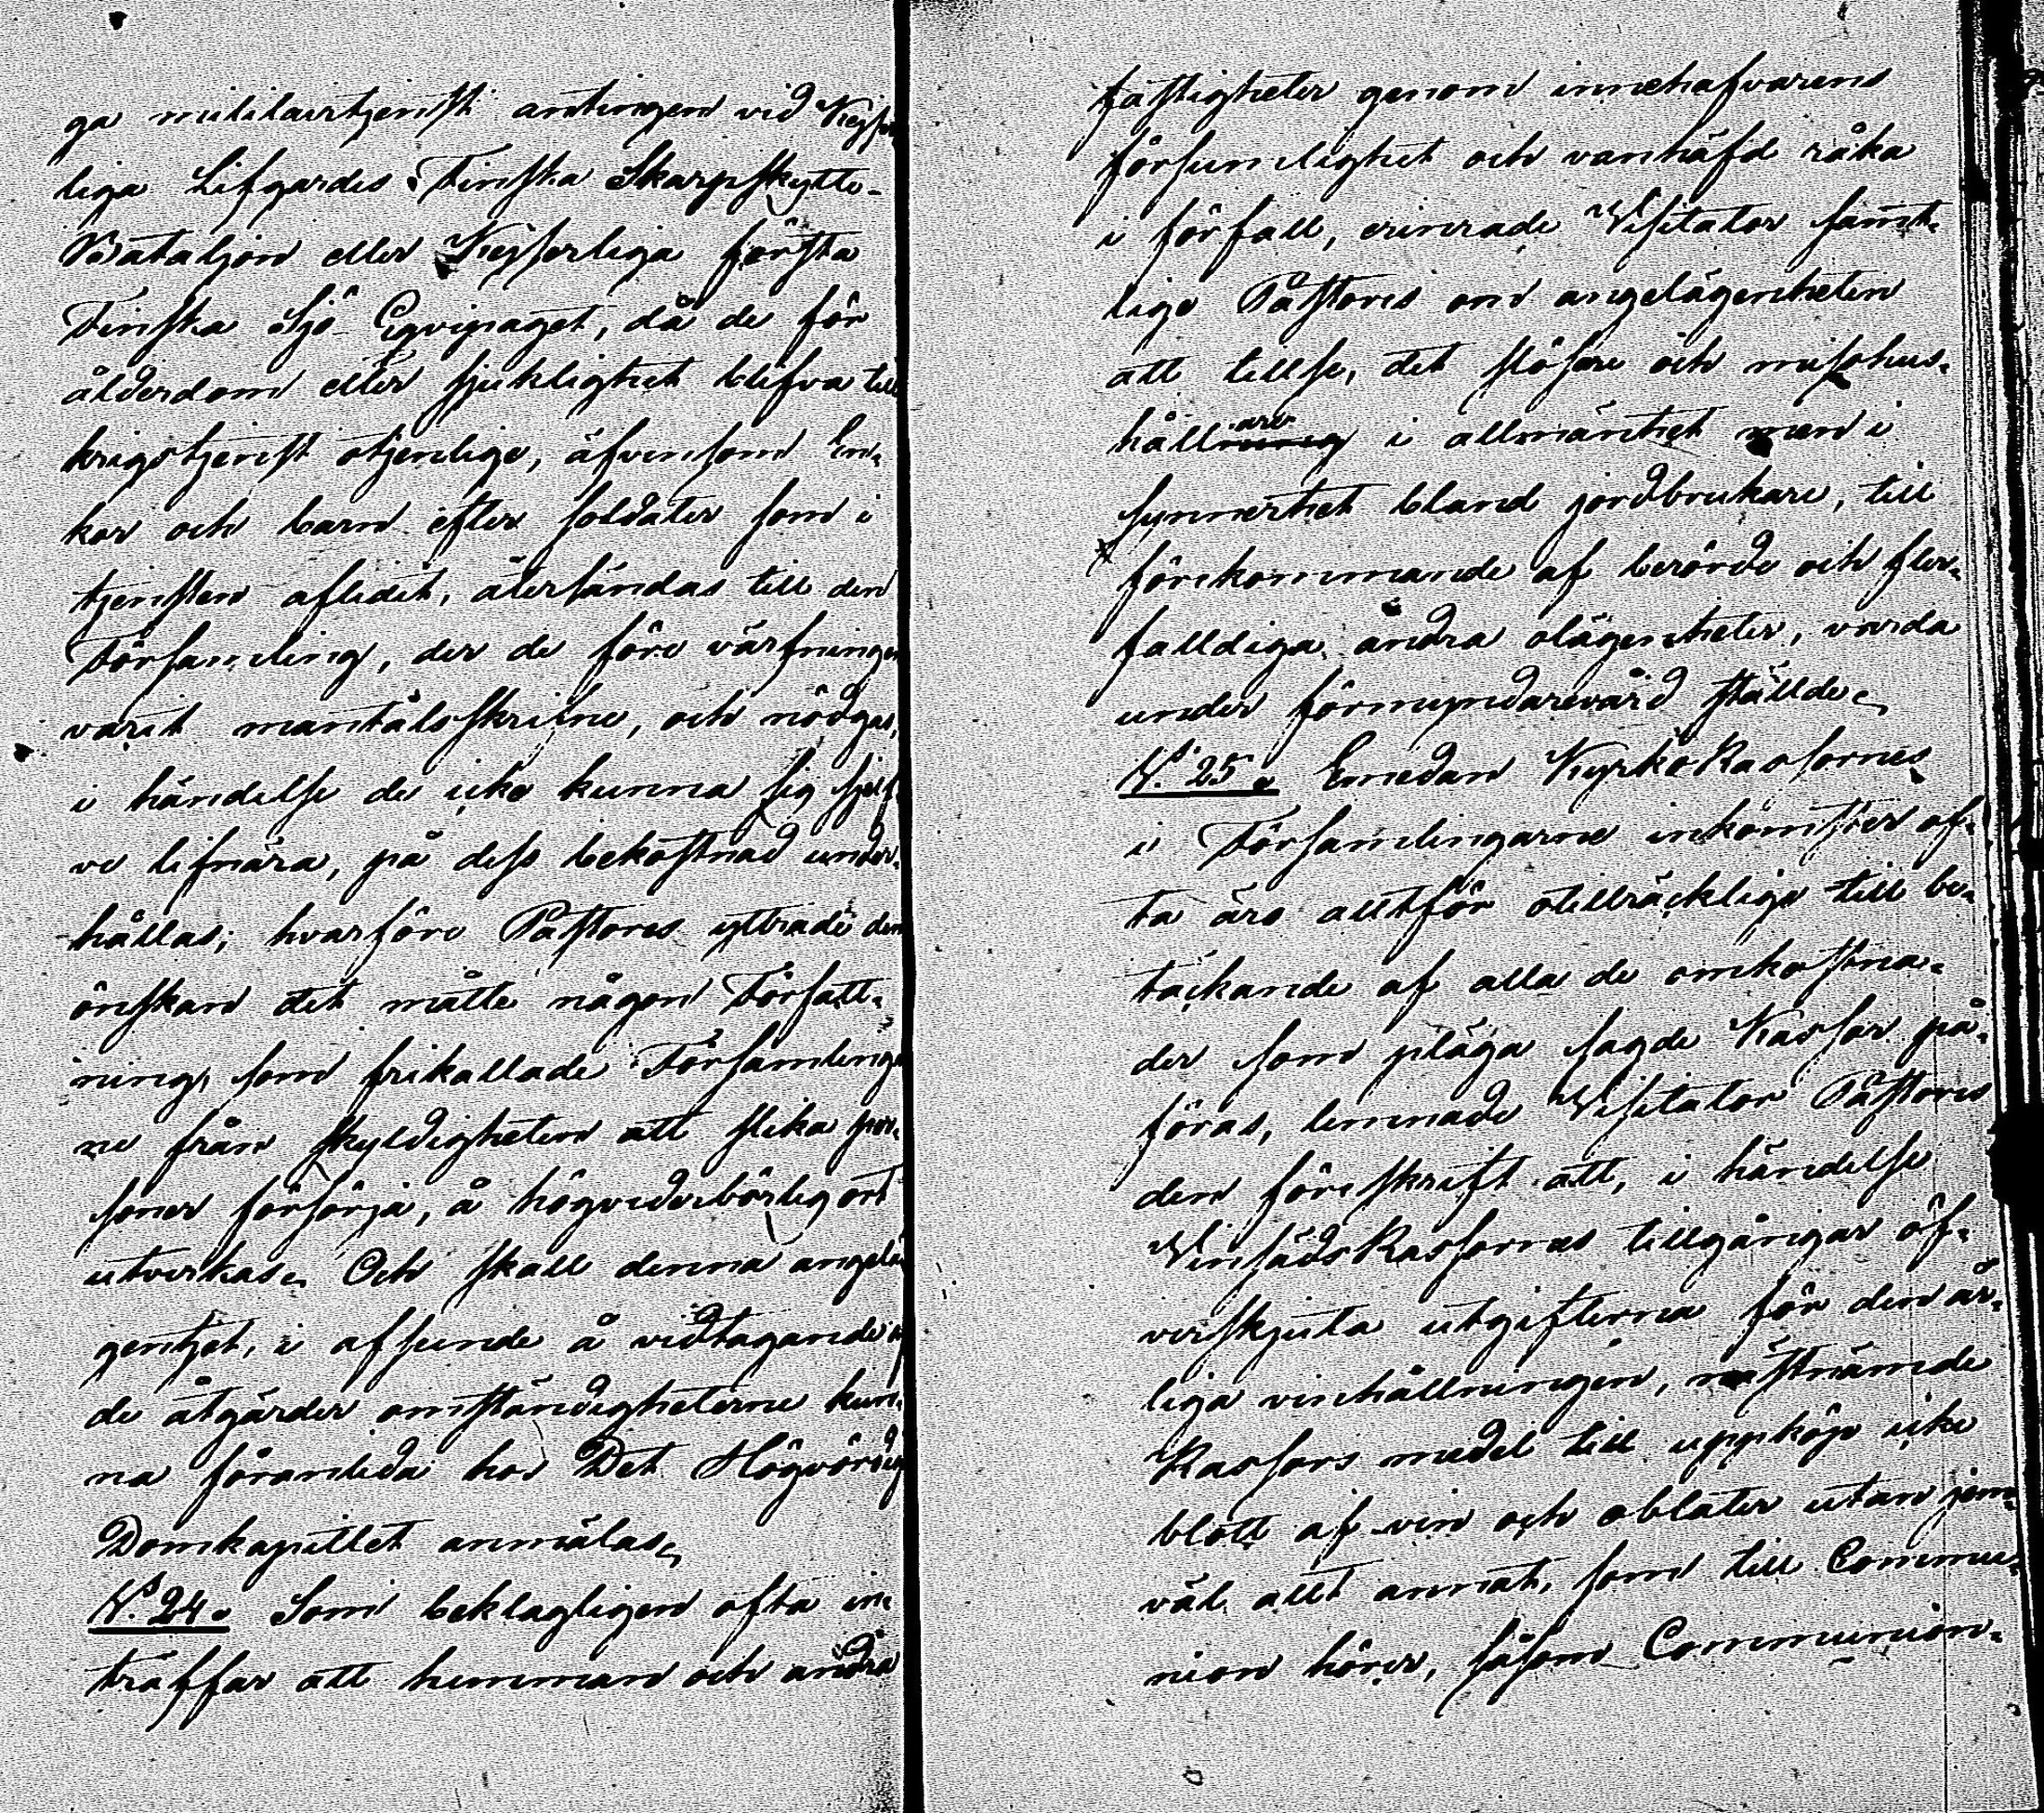 ga militairtjenst antingen vid Kejser
liga Lifgardes Finska Skarpskytte-
Bataljon eller Kejserliga första
Finska Sjö Eqvipaget, då de för
ålderdom eller sjuklighet blifva till
krigstjenst otjenlige, äfvensom En-
kor och barn efter soldater som i
tjensten aflidit, återsändas till den
Församling, der de före värfningen
varit mantalsskrifne, och nödgas,
i händelse de icke kunna sig sjelf-
ve lifnära, på dess bekostnad under-
hållas; hvarföre Pastores yttrade den
önskan det måtte någon Författ-
ning, som frikallade Församlinga
ne från skyldigheten att slika per-
soner försörja, å högvederbörlig ort
utverkas. Och skall denna angelä
genhet, i afseende å vidtagande af
de åtgärder omständigheterne kun-
na föranleda hos Det Högvördige
Domkapitlet anmälas.
N:o 24. Som beklagligen ofta in-
träffar att hemman och andra
fastigheter genom innehafvarens
försumlighet och vanhäfd råka
i förfall, erinrade Visitator samt-
lige Pastores om angelägenheten
att tillse, det slösare och misshus-
hållare i allmänhet men i
synnerhet bland jordbrukare, till
förekommande af berörde och fler-
falldiga andra olägenheter, varda
under förmyndarevård ställde.
N:o 25. Emedan KyrkoKassornes
i Församlingarne inkomster of-
ta äro alltför otillräcklige till be-
täckande af alla de omkostna-
der som pläga sagde Kassor på-
föras, lemnade Visitator Pastores
den föreskrift att, i händelse
VinsädsKassornas tillgångar öf-
verskjuta utgifterna för den år-
liga vinhållningen, nästnämde
Kassors medel till uppköp icke
blott af vin och oblater utan jem-
väl allt annat, som till Commu-
nion hörer, såsom Communion-